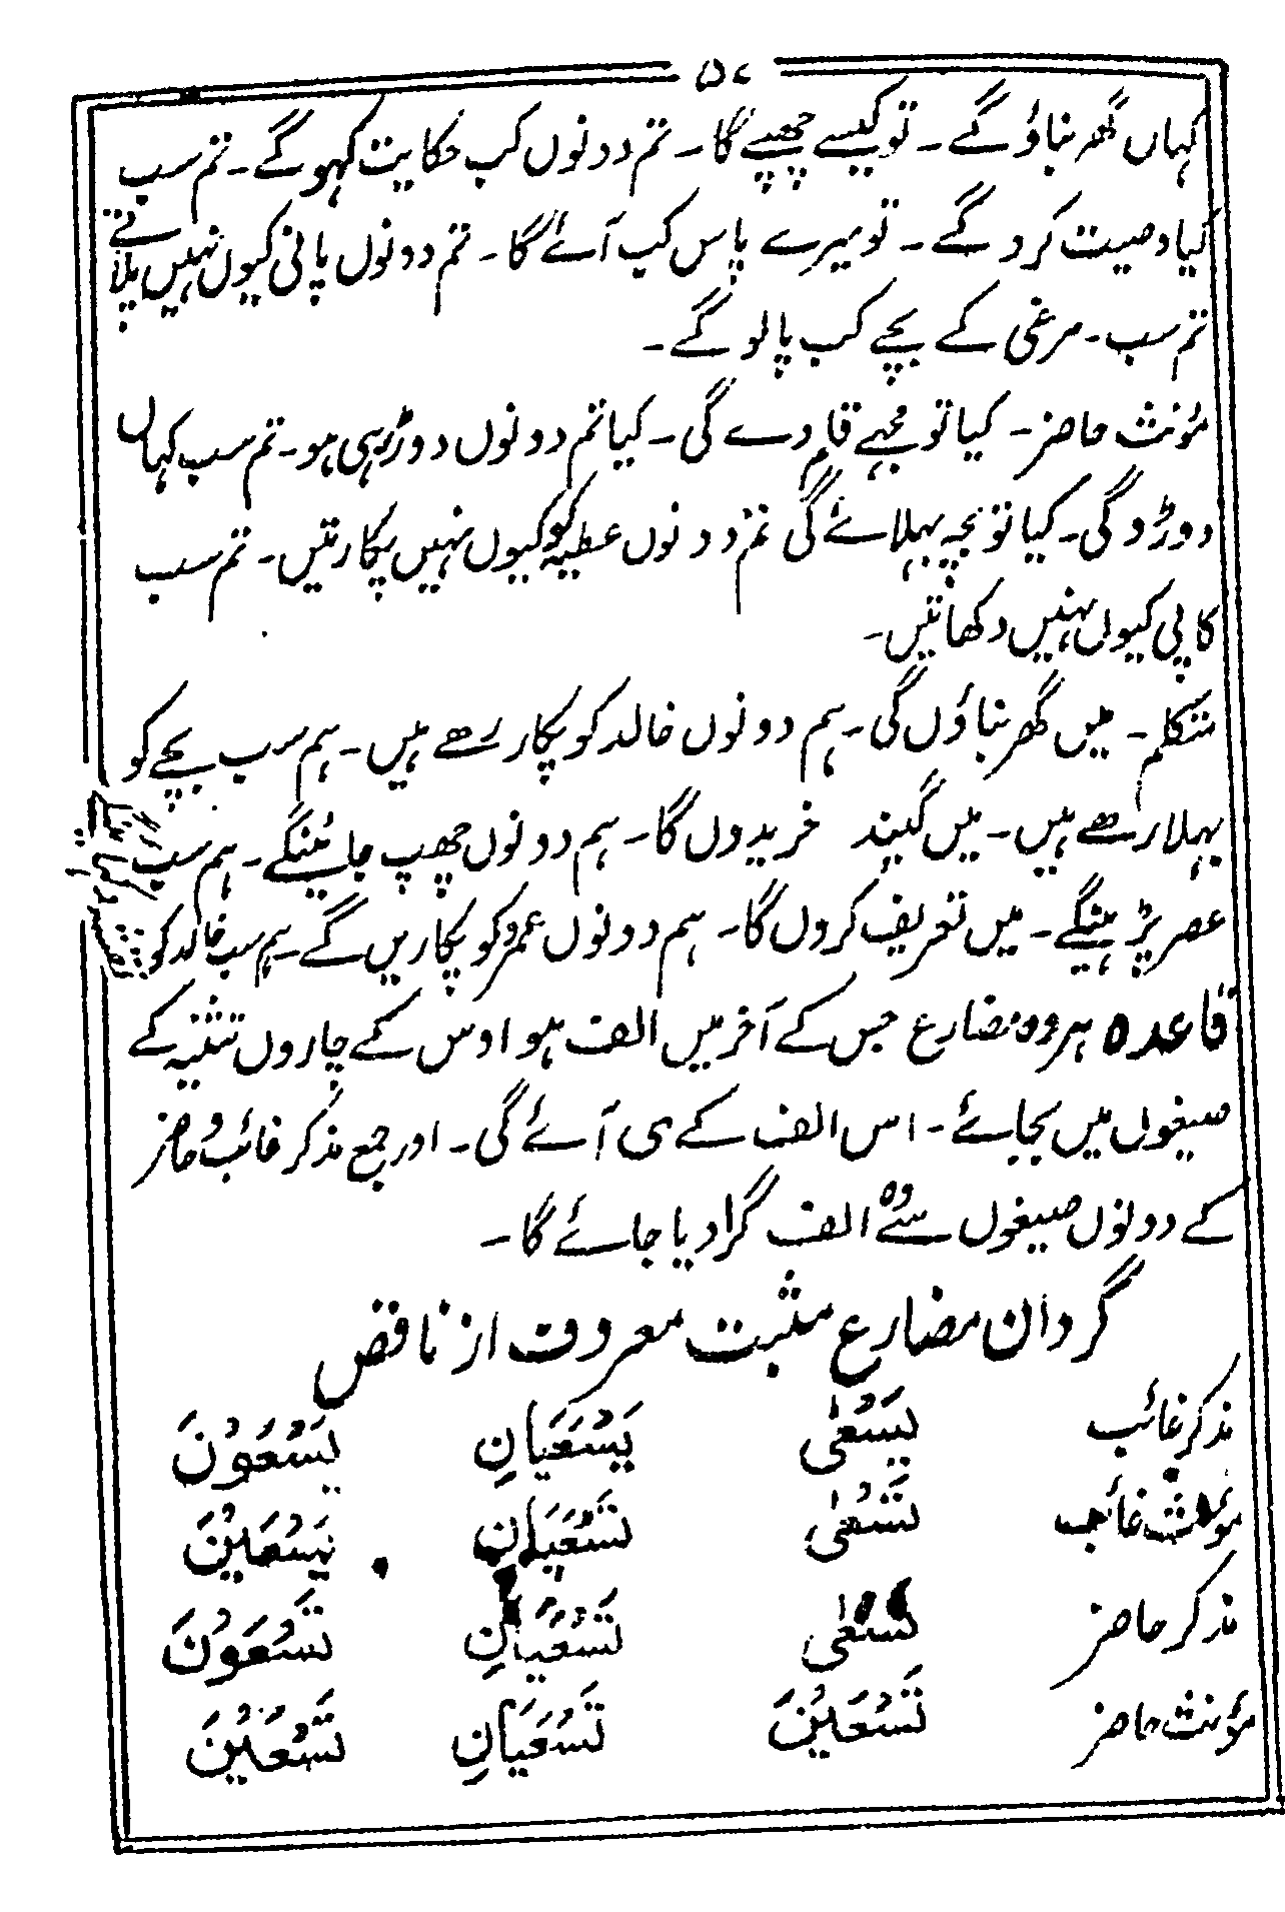 ۵۷
کہاں گھر بناؤ گے ۔ تو کیسے چھپے گا ۔ تم دونوں کب حکایت کہو گے ۔ تم سب
کیا وصیت کرو گے ۔ تو میرے پاس کب آئے گا ۔ تم دونوں پانی کیوں نہیں پلاتے
تم سب ۔ مرغی کے بچے کب پالو گے ۔
مؤنث حاضر ۔ کیا تو مجہے قلم دے گی ۔ کیا تم دونوں دوڑ رہی ہو ۔ تم سب کہاں
دوڑو گی ۔ کیا تو بچہ بہلائے گی تم دونوں عطیہ کو کیوں نہیں پکارتیں ۔ تم سب
کاپی کیوں نہیں دکھاتیں ۔
متکلم ۔ میں گھر بناؤں گی ۔ ہم دونوں خالد کو پکار رہے ہیں ۔ ہم سب بچے کو
بہلا رہے ہیں ۔ میں گیند خریدوں گا ۔ ہم دونوں چھپ جائینگے ۔ ہم سب
عصر پڑہینگے ۔ میں تعریف کروں گا ۔ ہم دونوں عمرو کو پکاریں گے ۔ ہم سب خالد کو
قاعدہ ہر وہ مضارع جس کے آخر میں الف ہو اوس کے چاروں تثنیہ کے
صیغوں میں بجائے ۔ اس الف کے ی آئے گی ۔ اور جمع مذکر غائب و حاضر
کے دونوں صیغوں سے وہ الف گرا دیا جائے گا ۔
گردان مضارع مثبت معروف از ناقص
مذکر غائب يَسْعٰى يَسْعَيَانِ يَسْعَوْنَ
مؤنث غائب تَسْعٰى تَسْعَيَانِ يَسْعَيْنَ
مذکر حاضر تَسْعٰى تَسْعَيَانِ تَسْعَوْنَ
مؤنث حاضر تَسْعَيْنَ تَسْعَيَانِ تَسْعَيْنَ